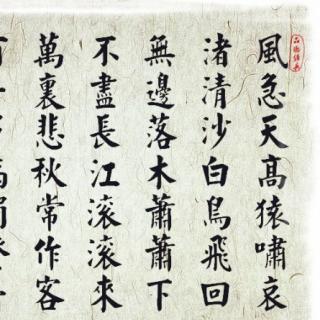 風急天高猿嘯哀
渚清沙白鳥飛回
無邊落木蕭蕭下
不盡長江滾滾來
萬裏悲秋常作客